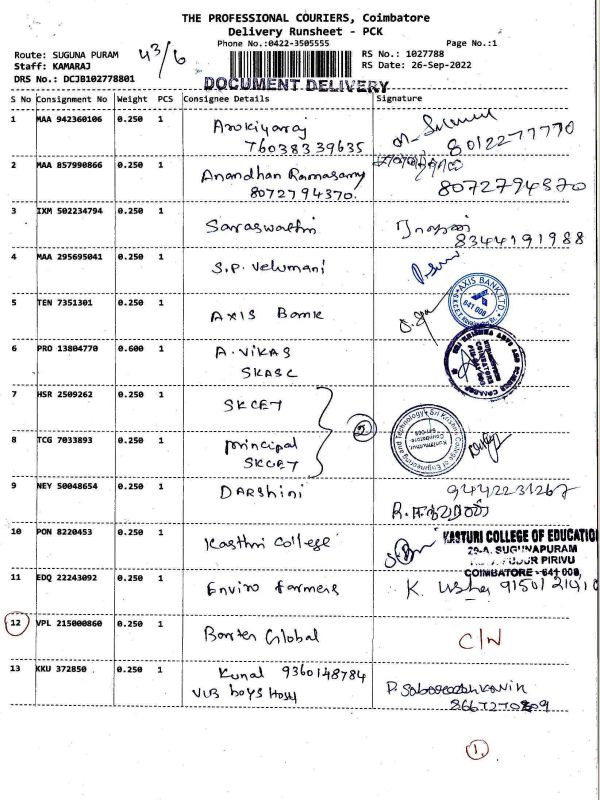 THE PROFESSIONAL COURIERS, Coimbatore
Delivery Runsheet - PCK
Phone No.:0422-3505555 Page No.:1
Route: SUGUNA PURAM 43/6 RS No.: 1027788
Staff: KAMARAJ RS Date: 26-Sep-2022
DRS No.: DCJB102778801
DOCUMENT DELIVERY
S No Consignment No Weight PCS Consignee Details Signature
1 MAA 942360106 0.250 1 Arokiyaraj
76038339635 8012277770
2 MAA 857990866 0.250 1 Anandhan Ramasamy
8072794370. 8072794370
3 IXM 502234794 0.250 1 Saraswathi
8344191988
4 MAA 295695041 0.250 1 S.P. Velumani
5 TEN 7351301 0.250 1 AXIS Bank
AXIS BANK LTD
641 008
6 PRO 13804770 0.600 1 A. VIKAS
SKASC
7 HSR 2509262 0.250 1 SKCET
2
8 TCG 7033893 0.250 1 principal
SKCET
9 NEY 50048654 0.250 1 DARShini 9442231267
10 PON 8220453 0.250 1 Kasthri College
KASTURI COLLEGE OF EDUCATION
29-A, SUGUNAPURAM
PUDUR PIRIVU
COIMBATORE - 641 008,
11 EDQ 22243092 0.250 1 Enviro farmers K. Usha
12 VPL 215000860 0.250 1 Global C/N
13 KKU 372850 0.250 1 Kunal 9360148784
boys
1.